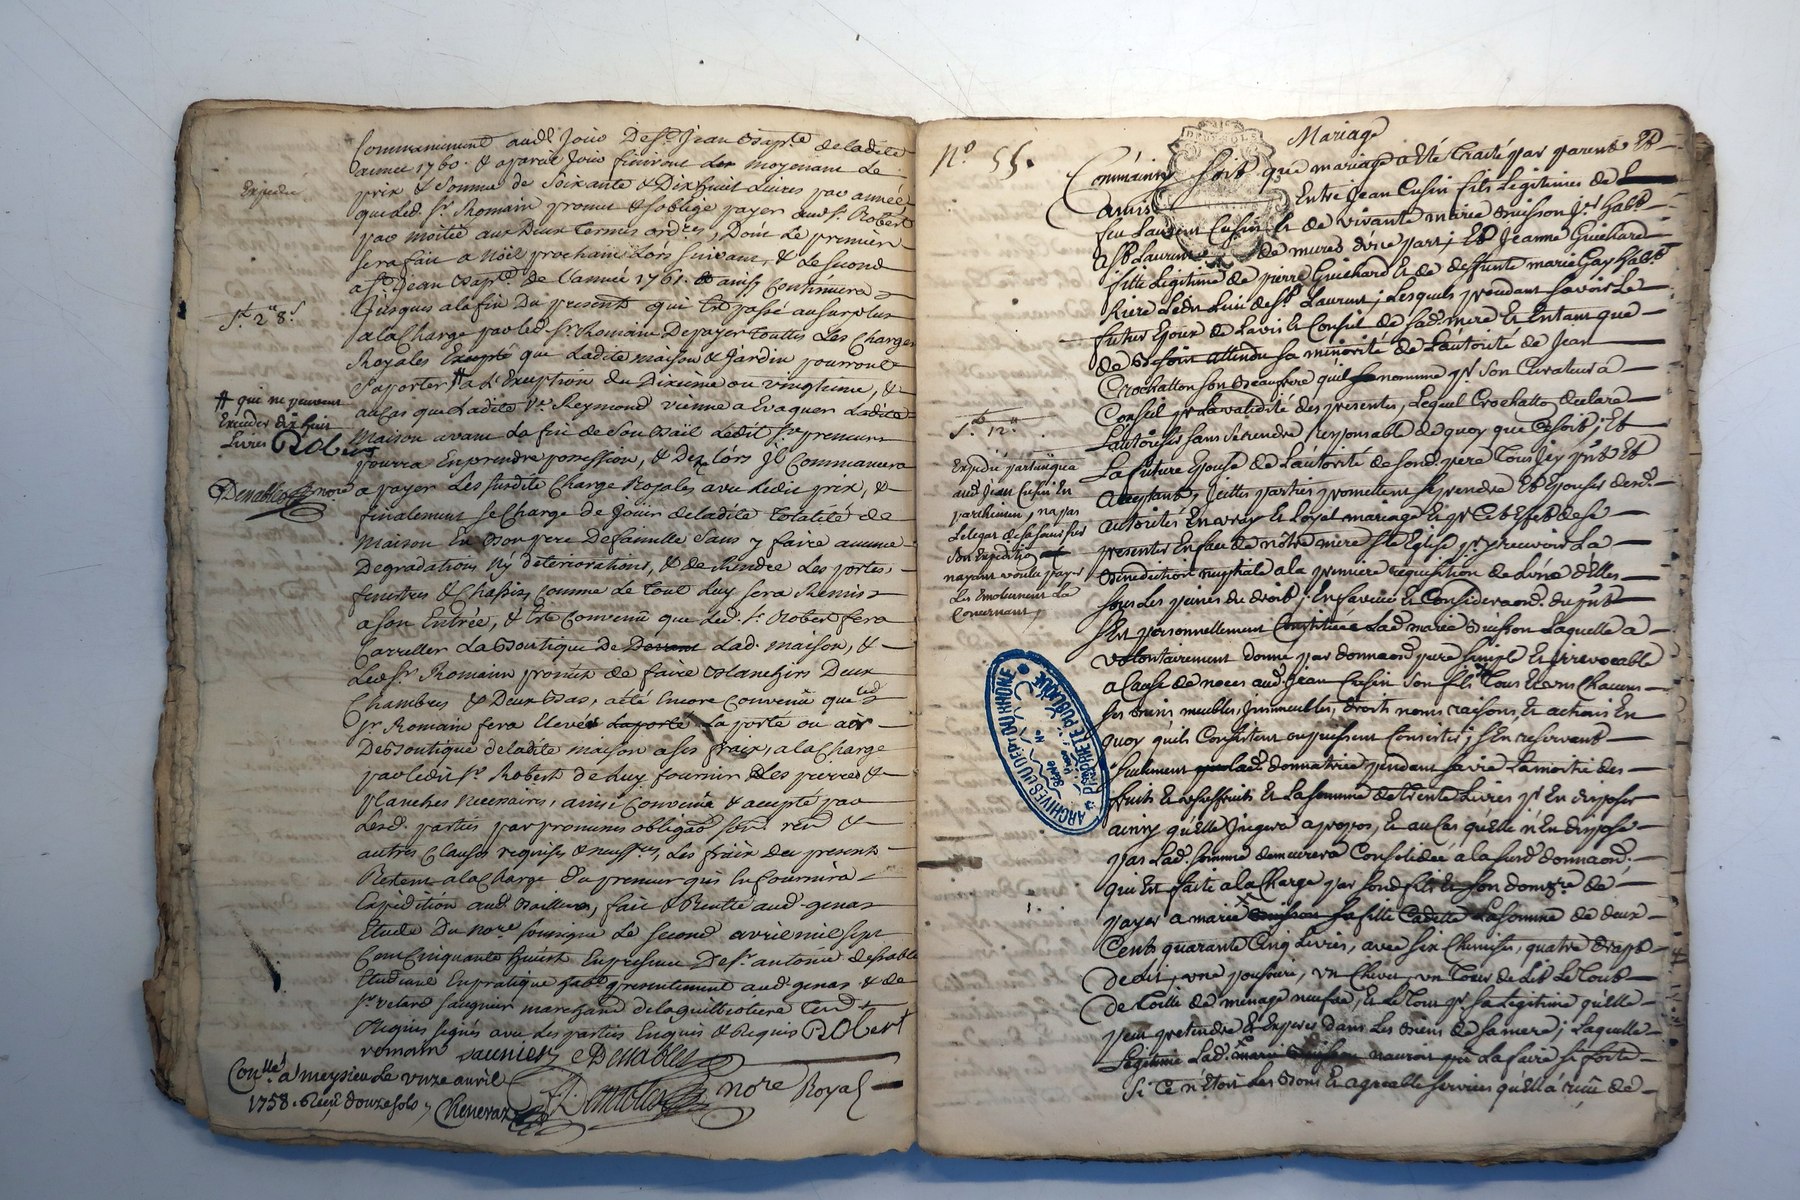 Commencement aud. Jour De St. Jean Bapte. de ladite
année 1760. & apareil Jour finiront Les moyenant Le
prix & Somme de Soixante & Dix huit Livres par année,
que Led. Sr. Romain promet & s'oblige payer aud. Sr. Robert
par moitié aux Deux Termes ordres, Dont Le premier
sera fait a Nöel prochain Lors Suivant, & Le Second
a St. Jean Bapte. de L'année 1761. & ainsy Continuera
Jusques a la fin Du present qui Est passé au Surplus
a la Charge par led. Sr. Romain De payer Touttes Les Charges
Royales Excepté que Ladite maison & Jardin pourront
Suporter # a L'Exception du Dixieme ou vingtieme, &
au Cas que Ladite Ve. Reymond vienne a Evaquer Ladite
Maison avant La fin de Son Bail Ledit Sr. preneur
pourra En prendre possession, & De Lors Jl Commencera
a payer Les Susdite Charge Royales avec Ledit prix, &
finalement Se Charge de Jouir de ladite Totalité de
Maison En Bon pere De famille Sans y faire aucune
Degradations Ny deteriorations, & de Rendre Les portes,
fenetres & Chassis comme Le Tout Luy Sera Remis
a Son Entrée, & Est Convenu que Led. Sr. Robert fera
Carreller La Boutique de Devant Lad. maison, &
Led. Sr. Romain promet de faire Blanchir Deux
Chambres & Deux Bas, a été Encore Convenu que led.
Sr. Romain fera Elever La porte ou arc
De Boutique de ladite maison a Ses fraix, a la Charge
par ledit Sr. Robert de Luy fournir Les pierres &
planches necessaires, ainsi Convenu & accepté par
Lesd. parties par promesses obligaon. Serm. ren. &
autres Clauses requises & necessres, Les fraix du present
Restent a la Charge Du preneur qui En fournira
Expedition aud. Bailleur, fait & Recitté aud. genas
Etude Du nore. Soussigné Le Second avril mil Sept
Cent Cinquante huit En presence De Sr. antoine desnable
Etudiant En pratique habt. presentement aud. genas & de
Sr. velard Saugnier marchand de la guillotiere Tem.
Requis Signés avec Les parties Enquis & Requis Robert
romain Saunier Denablet
Desnables nore Royal
Con.llé a meysieu Le onze avril
1758. Reçu douze sols Cheneraz
Expedié
Sl. 2tt 8s.
# qui ne peuvent
Exceder dix huit
Livres Robert
Denables nore
N° 55.
Mariage
Comm'ainsy Soit que mariage a Eté Traité par parents Et
amis Entre Jean Cusin fils Legitimes de
feu Laurent Cusin Et de vivante marie Buisson Jr. habt.
a St. Laurent de mures d'Une part; Et Jeanne Guichard
fille Legitime de pierre Guichard Et de deffunte marie Gay habt.
Riere Led. Lieu de St. Laurent; Lesquels procedant Savoir Le
futur Epoux de L'avis Et Conseil de Sad. mere Et En tant que
de Besoin attendu Sa minorité de L'autorité de Jean
Crochatton Son Beaufrere qu'il nomme pr. Son Curateur a
Conseil pr. La validité des presentes, Lequel Crochatton declare
L'autoriser Sans Se rendre Responsable de quoy que Ce Soit; Et
La future Epouse de L'autorité de Sond. pere Tous Jcy pnts Et
acceptant, Jcelles parties promettent Se prendre Et Epouser desd.
autorités En vray Et Loyal mariage Et pr. Cet Effet de Se
presenter En face de nôtre mere Ste. Eglise pr. y recevoir La
Benediction nuptiale a la premiere requisition de L'une d'Elles
Sous Les peines du droit; En faveur Et Consideraon. du pnt
S'Est personnellement Constituée Lad. marie Buisson Laquelle a
volontairement donné par donnaon. pure Simple Et irrevocable
a Cause de noces aud. Jean Cusin Son fils Tous Et uns Chacuns
Ses Biens meubles, Jmmeubles, droits noms raisons, Et actions En
quoy qu'ils Consistent ou puissent Consister; S'En reservant
Seulement Lad. donnatrice pendant Sa vie La moitié des
fruits Et usufruits Et La Somme de Trente Livres pr. En disposer
ainsy qu'Elle Jugera apropos, Et au Cas qu'Elle n'En dispose
pas Lad. Somme demeurera Consolidée a la Susd. donnaon.
qui Est faite a la Charge par Sond. fils Et Son donatre. de
payer a marie Sa fille Cadette La Somme de deux
Cents quarante Cinq Livres, avec Six Chemises, quatre draps
de Lit, un Tour de Lit Le Tout
de Toille de menage neufve; Et Le Tout pr. Sa Legitime qu'Elle
peut pretendre Et Esperer dans Les Biens de Sa mere; Laquelle
Legitime Lad. n'auroit pu La faire Si forte
Si Ce n'Etoit Les Bons Et agreable Services qu'Elle a reçu de
Sl. 12tt.
Expedié partie
aud. Jean Cusin En
parchemin, n'a pas
Son Expedition
n'ayant voulu payer
Les Emoluments La
Concernant
ARCHIVES DU DEPT DU RHONE
PROPRIÉTÉ PUBLIQUE
Série
No